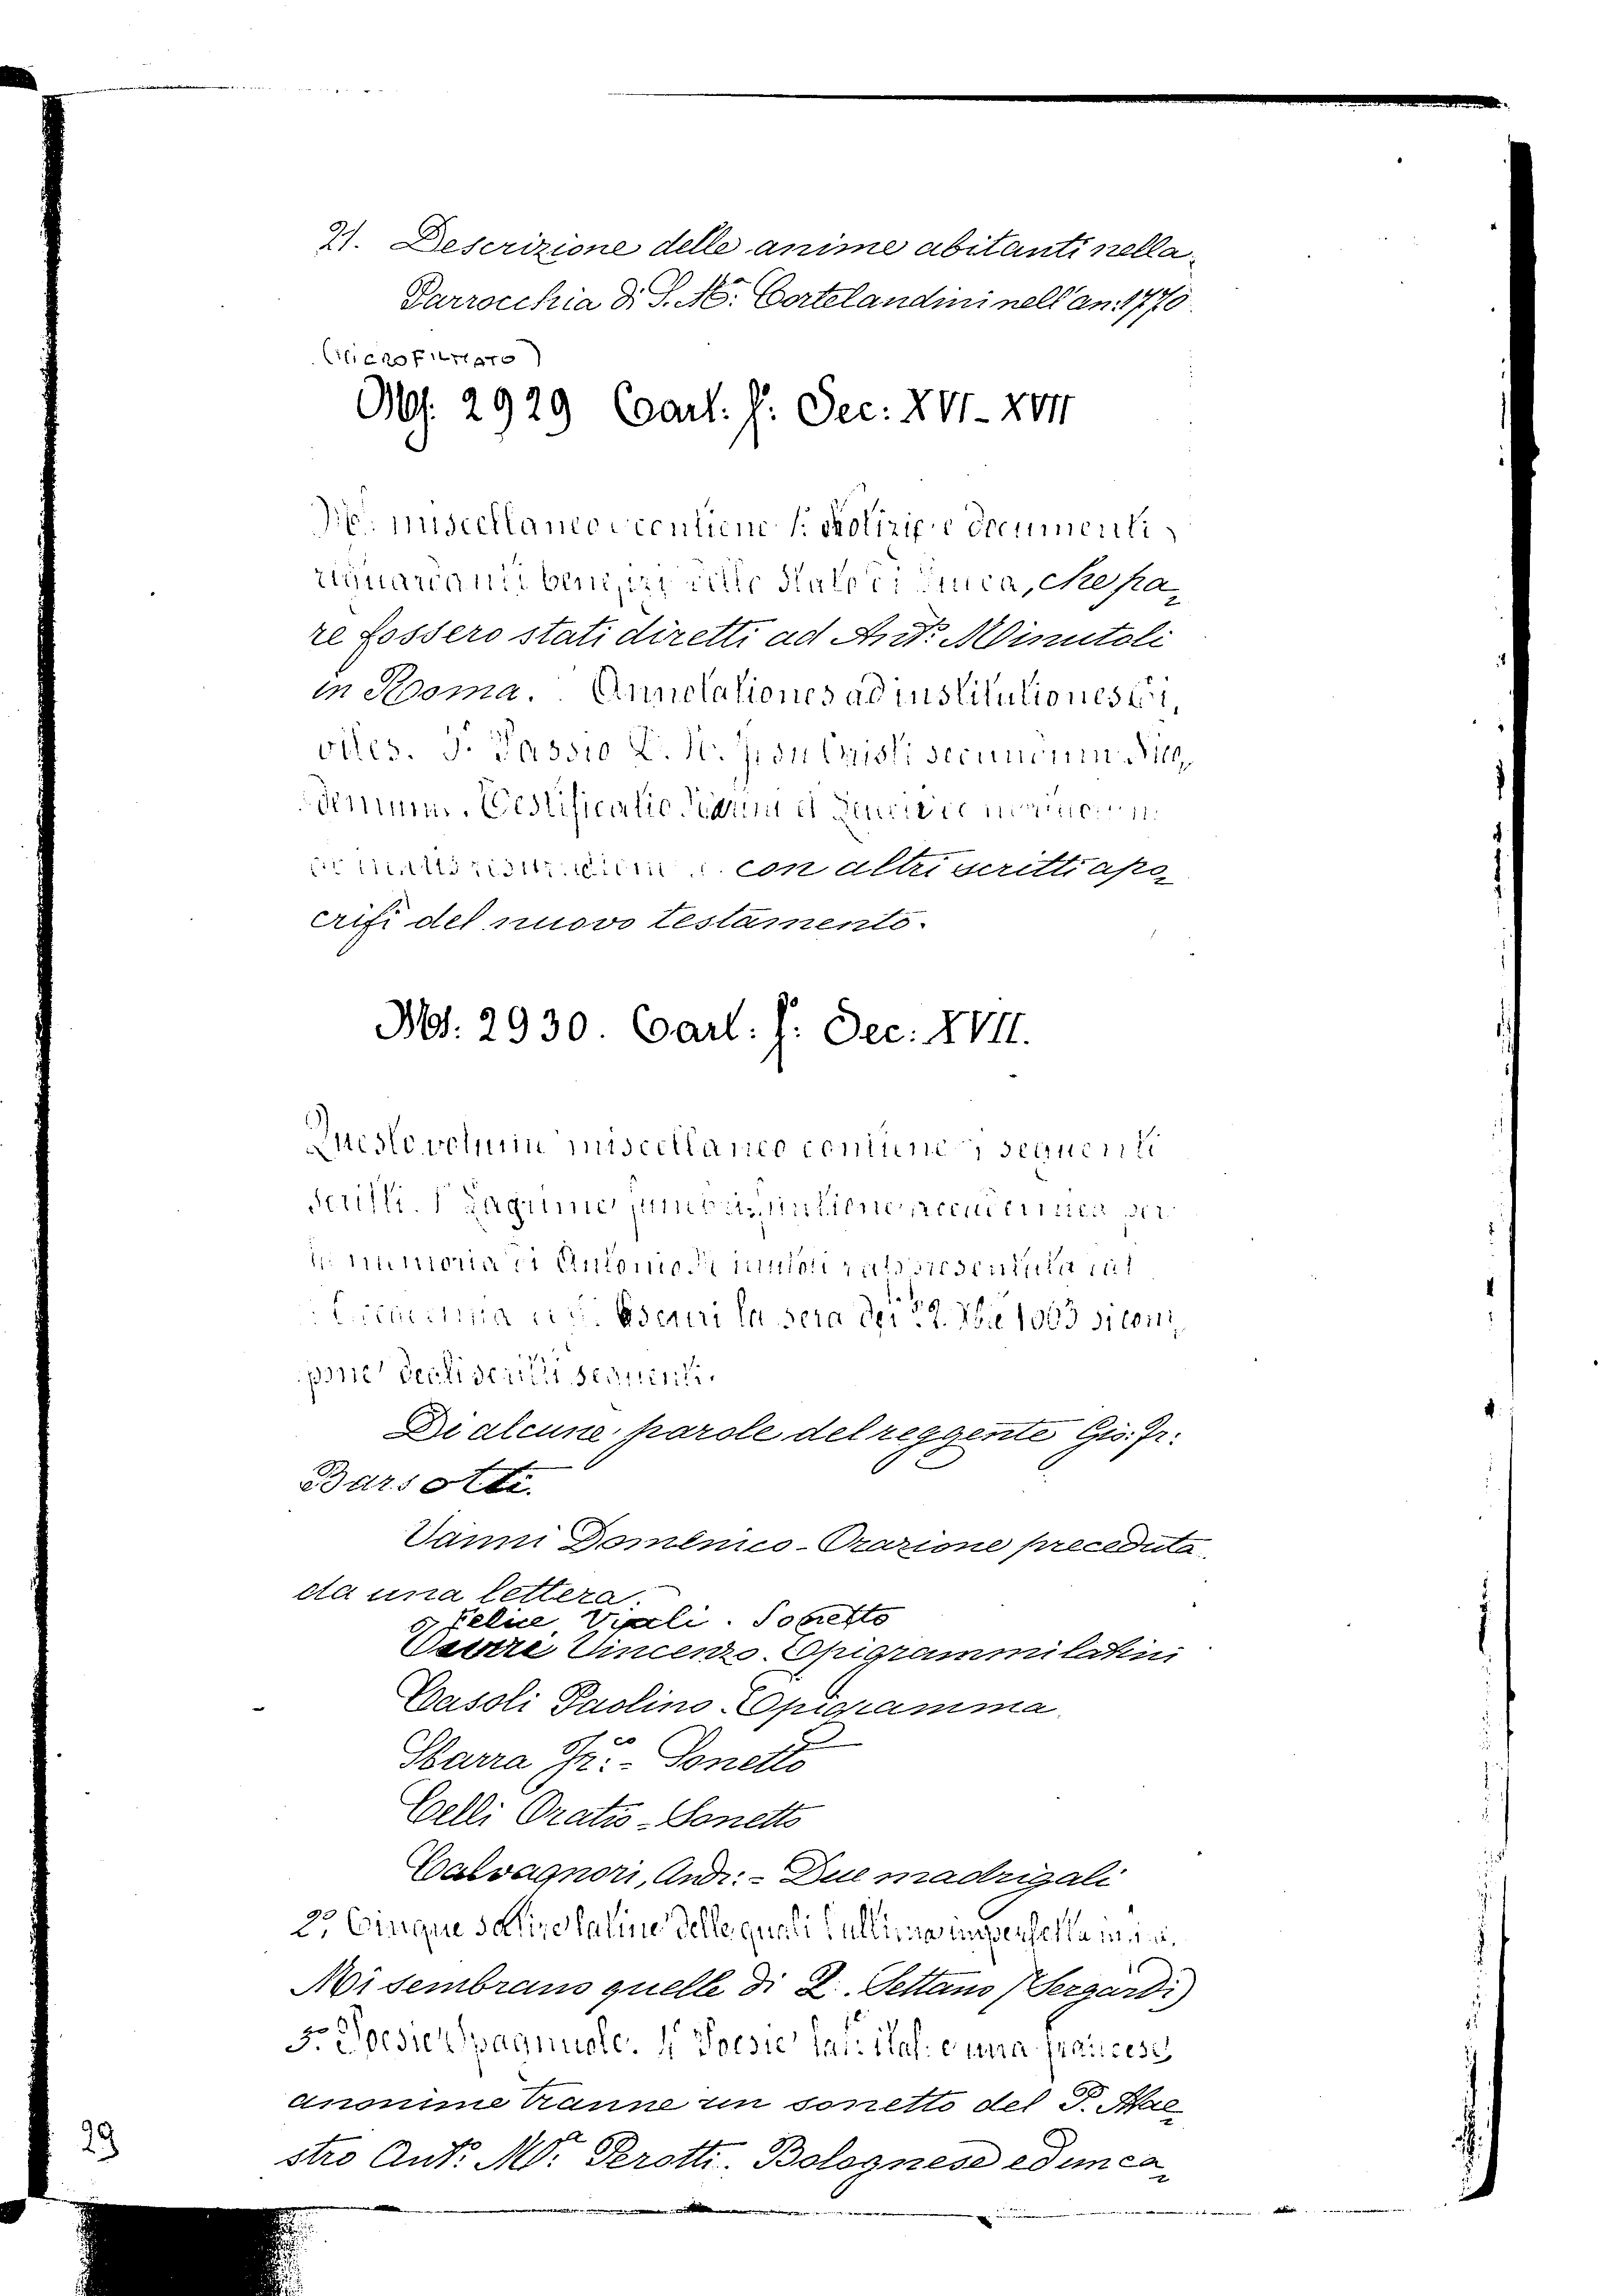 21. Descrizione delle anime abitanti nella
Parrocchia di S. Mª: Cortelandini nell'an: 1770.
(Microfilmato)
Ms. 2929 Cart. f: Sec: XVI-XVII
Ms. miscellaneo contiene 1: Notizie e documenti
riguardanti dello Stato di Lucca, che pa-
re fossero stati diretti ad Antº: Minutoli
in Roma. Annotationes ad institutiones ci-
viles. 3. Passio D. N. Jesu Cristi secundum Nico-
demum. Testificatio
con altri scritti apo-
crifi del nuovo testamento.
Ms. 2930. Cart: f: Sec: XVII.
Questo volum miscellaneo contiene i sequenti
scritti. 1 Lagrime
memoria di Antonio rappresentata
Oscuri la sera dei 22. si com-
pone degli scritti sequenti.
Di alcune parole del reggente Gio: Fr:
Barsotti.
Vanni Domenico - Orazione preceduta
da una lettera.
Felice Viali. Sonetto
Vincenzo. Epigrammi latini
Casoli Paolino - Epigramma
Sbarra Frºº: - Sonetto
Celli Oratio - Sonetto
Calvagnori, Andr: - Due madrigali
2º, Cinque satire latine delle quali l'ultima imperfetta
Mi sembrano quelle di L. Settano (Sergardi)
3º Poesie Spagnuole. 4º Poesie lat: ital: e una francese
anonime tranne un sonetto del P. Mae-
stro Antº: Mª: Perotti. Bolognese ed un ca-
29